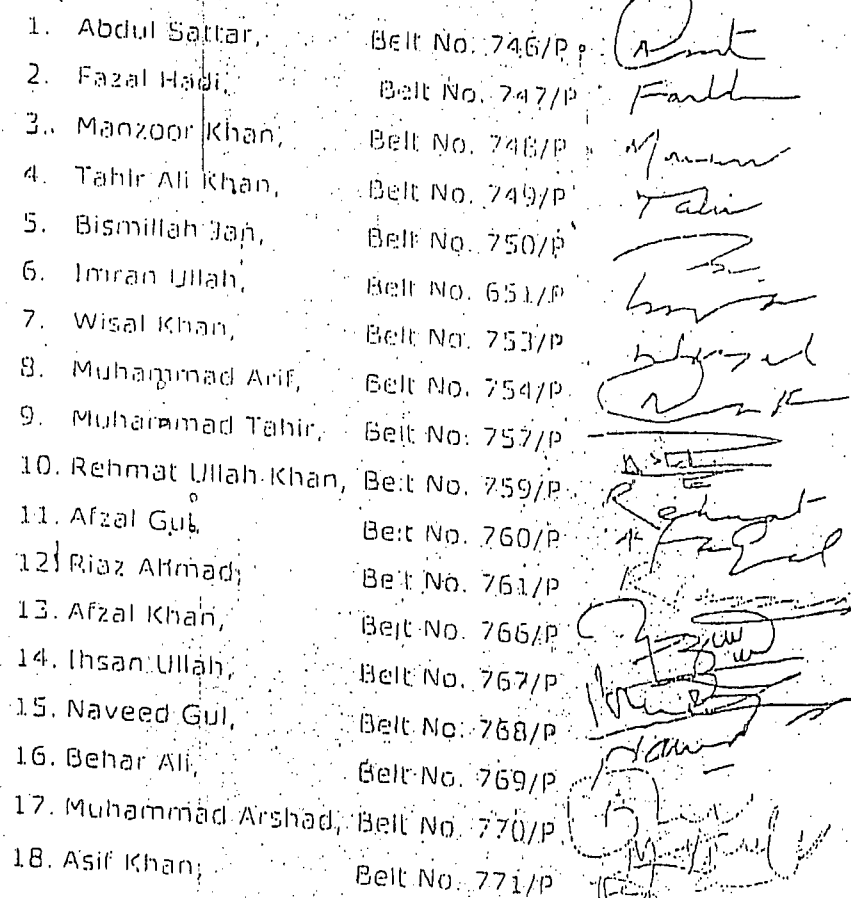 1. Abdul Sattar, Belt No. 746/P
2. Fazal Hadi, Belt No. 747/P
3. Manzoor Khan, Belt No. 748/P
4. Tahir Ali Khan, Belt No. 749/P Tahir
5. Bismillah Jan, Belt No. 750/P
6. Imran Ullah, Belt No. 651/P
7. Wisal Khan, Belt No. 753/P
8. Muhammad Arif, Belt No. 754/P
9. Muhammad Tahir, Belt No. 757/P
10. Rehmat Ullah Khan, Belt No. 759/P Rehmat
11. Afzal Gul, Belt No. 760/P
12. Riaz Ahmad, Belt No. 761/P
13. Afzal Khan, Belt No. 766/P
14. Ihsan Ullah, Belt No. 767/P
15. Naveed Gul, Belt No. 768/P
16. Behar Ali, Belt No. 769/P
17. Muhammad Arshad, Belt No. 770/P
18. Asif Khan, Belt No. 771/P